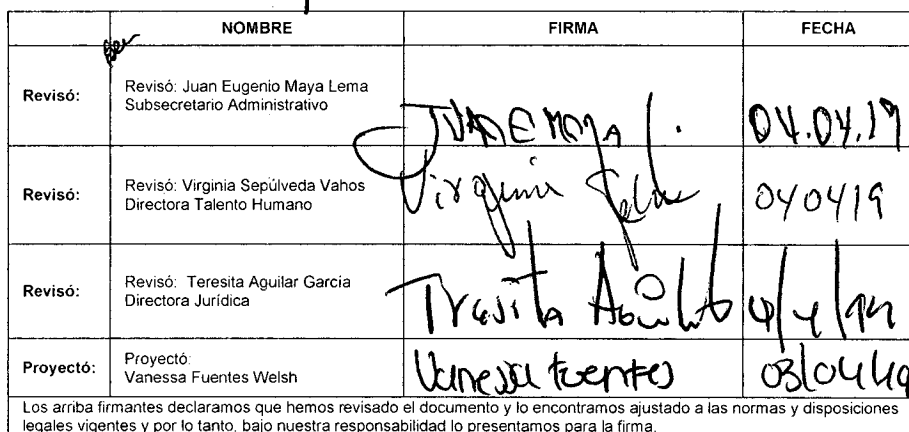 NOMBRE FIRMA FECHA
Revisó: Revisó: Juan Eugenio Maya Lema
Subsecretario Administrativo
JUAN E MAYA L. 04.04.19
Revisó: Revisó: Virginia Sepúlveda Vahos
Directora Talento Humano
Virginia 040419
Revisó: Revisó: Teresita Aguilar García
Directora Jurídica
Teresita Aguilar 4/4/19
Proyectó: Proyectó:
Vanessa Fuentes Welsh
Vanessa Fuentes 03/04/19
Los arriba firmantes declaramos que hemos revisado el documento y lo encontramos ajustado a las normas y disposiciones
legales vigentes y por lo tanto, bajo nuestra responsabilidad lo presentamos para la firma.